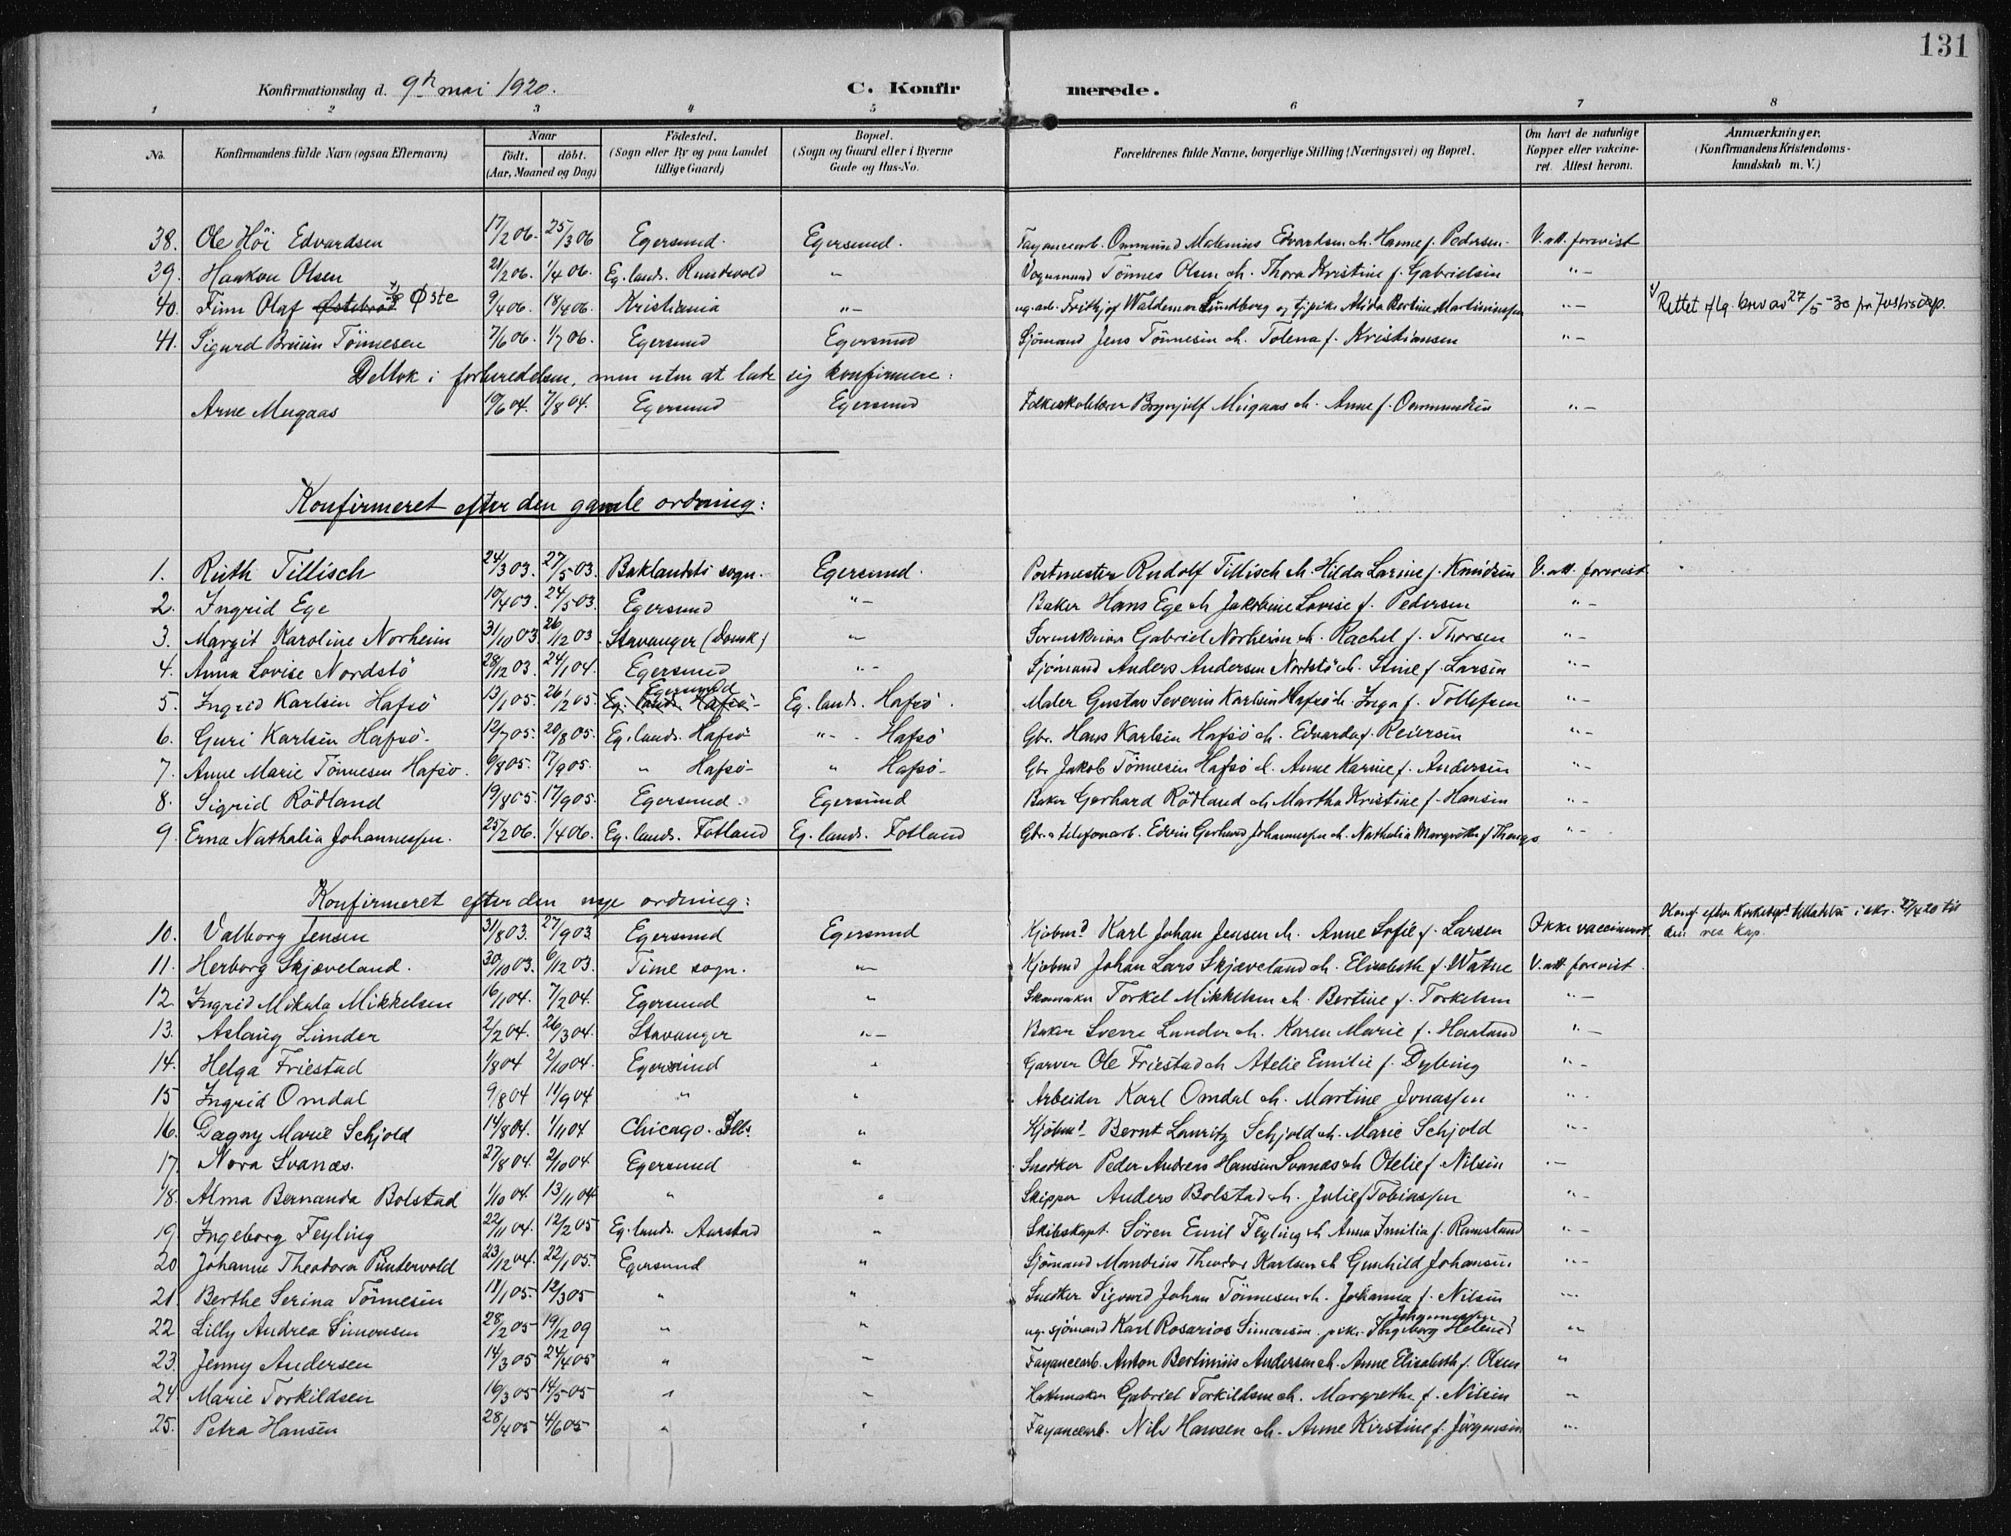 131
Konfirmationsdag d. 9de mai 1920.
C. Konfir merede.
1 2 3 4 5 6 7 8
No. Konfirmandens fulde Navn (ogsaa Efternavn) Naar födt. döbt. (Aar, Maaned og Dag) Födested. (Sogn eller By og paa Landet tillige Gaard) Bopæl. (Sogn og Gaard eller i Byerne Gade og Hus-No. Forældrenes fulde Navne, borgerlige Stilling (Næringsvei) og Bopæl. Om havt de naturlige Kopper eller vakcineret. Attest herom. Anmærkninger. (Konfirmandens Kristendomskundskab m. V.)
38. Ole Höi Edvardsen 17/2 06. 25/3 06 Egersund. Egersund. Fayancearb. Ommund Matenius Edvardsen & h. Hanne f. Pedersen. V. att. forevist
39. Haakon Olsen 21/2 06. 1/4 06. Eg. lands. Rundvold " — Vognmand Tönnes Olsen & h. Thora Kristine f. Gabrielsen " —
40. Finn Olaf Østebrød 1) Øste 9/4 06. 18/4 06. Kristiania " — ug. arb. Frithjof Waldemar Lundberg og tj.pik. Alida Bertine Martiniussen " — 1) Rettet iflg. brev av 27/5-30 fra Justisdep.
41. Sigurd Bruun Tönnesen 7/6 06. 1/7 06. Egersund Egersund Sjömand Jens Tönnesen & h. Tolena f. Kristiansen " —
Deltok i forberedelsen, men uten at late sig konfirmere:
Arne Mugaas 19/6 04. 7/8 04. Egersund Egersund Folkeskolelærer Brynjulf Mugaas & h. Anne f. Ommundsen " —
Konfirmeret efter den gamle ordning:
1. Ruth Tillisch 24/3 03. 27/5 03. Baklandets sogn. Egersund. Postmester Rudolf Tillisch & h. Hilda Larine f. Knudsen V. att. forevist.
2. Ingrid Ege 10/4 03. 24/5 03. Egersund " — Baker Hans Ege & h. Jakobine Lovise f. Pedersen " —
3. Margit Karoline Norheim 31/10 03 26/12 03 Stavanger (Domk) " — Sorenskriver Gabriel Norheim & h. Rachel f. Thorsen " —
4. Anna Lovise Nordstö 28/12 03. 24/1 04. Egersund " — Sjömand Anders Andersen Nordstö & h. Stine f. Larsen " —
5. Ingrid Karlsen Hafsö 13/1 05. 26/2 05. Egersund Eg. lands. Hafsö Eg. lands. Hafsö. Maler Gustav Severin Karlsen Hafsö & h. Inga f. Tollefsen " —
6. Guri Karlsen Hafsö 12/7 05. 20/8 05. Eg. lands. Hafsö " — Hafsö Gbr. Hans Karlsen Hafsö & h. Edvarda f. Reiersen " —
7. Anne Marie Tönnesen Hafsö. 6/8 05. 17/9 05. " Hafsö " Hafsö Gbr. Jakob Tönnesen Hafsö & h. Anne Karine f. Andersen " —
8. Sigrid Rödland 19/8 05 17/9 05. Egersund. Egersund Baker Gerhard Rödland & h. Martha Kristine f. Hansen " —
9. Erna Nathalia Johannessen. 25/2 06. 1/4 06. Eg. lands. Fotland Eg. lands. Fotland Gbr. & telefonarb. Edvin Gerhard Johannessen & h. Nathalia Margrethe f. Thengs " —
Konfirmeret efter den nye ordning:
10. Valborg Jensen 31/8 03. 27/9 03 Egersund Egersund Kjöbmd Karl Johan Jensen & h. Anne Sofie f. Larsen Ikke vaccineret. Konf. efter Kirkedept. tillatelse i skr. 27/4 20 til den res. kap.
11. Herborg Skjæveland. 30/10 03. 6/12 03. Time sogn. " — Kjöbmd Johan Lars Skjæveland & h. Elisabeth f. Watne V. att. forevist.
12. Ingrid Mikala Mikkelsen 16/1 04. 7/2 04. Egersund " Skomaker Torkel Mikkelsen & h. Bertine f. Torkelsen " —
13. Aslaug Lunder 2/2 04. 26/3 04. Stavanger " — Baker Sverre Lunder & h. Karen Marie f. Haaland " —
14. Helga Friestad 1/8 04 2/10 04. Egersund " Garver Ole Friestad & h. Atelie Emilie f. Dybing " —
15 Ingrid Omdal 9/8 04 11/9 04 " " Arbeider Karl Omdal & h. Martine Jonassen " —
16. Dagny Marie Schjold 14/8 04. 1/11 04 Chicago. Ills. " Kjöbmd. Bernt Lauritz Schjold & h. Marie Schjold " —
17. Nora Svanæs. 27/8 04. 2/10 04 Egersund " Snedker Peder Andreas Hansen Svanæs & h. Otelie f. Nilsen " —
18. Alma Bernanda Bolstad 1/10 04. 13/11 04 " " Skipper Anders Bolstad & h. Julie f Tobiassen " —
19. Ingeborg Feyling 22/11 04. 12/2 05 Eg. lands. Aarstad " Skibskapt. Sören Emil Feyling & h. Anna Emilia f. Ramsland " —
20. Johanne Theodora Puntervold 23/12 04. 22/1 05. Egersund " Sjömand Mandius Theodor Karlsen & h. Gunhild Johansen " —
21. Berthe Serina Tönnesen 11/1 05. 12/3 05 " " Snedker Sigvard Johan Tönnesen & h. Johanna f. Nilsen " —
22. Lilly Andrea Simonsen 28/2 05 19/12 09 " " ug. sjömand Karl Rosarios Simonsen. pike. Ingeborg Helene Johannessen " —
23. Jenny Andersen 14/3 05 24/4 05 " " Fayancearb. Anton Bertinius Andersen & h. Anne Elisabeth f. Olsen "
24. Marie Torkildsen 16/3 05 14/5 05 " " Hattemaker Gabriel Torkildsen & h. Margrethe f. Nilsen " —
25. Petra Hansen 28/4 05 4/6 05 " " Fayancearb. Nils Hansen & h. Anne Kirstine f. Jörgensen " —